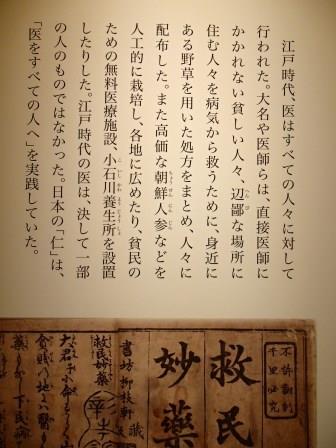 江戸時代、医はすべての人々に対して
行われた。大名や医師らは、直接医師に
かかれない貧しい人々、辺鄙な場所に
住む人々を病気から救うために、身近に
ある野草を用いた処方をまとめ、人々に
配布した。また高価な朝鮮人参などを
人工的に栽培し、各地に広めたり、貧民の
ための無料医療施設、小石川養生所を設置
したりした。江戸時代の医は、決して一部
の人のものではなかった。日本の「仁」は、
「医をすべての人へ」を実践していた。
不許翻刻
千里必究
救民
妙藥
書坊 柳枝軒 藏
救民妙藥
大君予小命